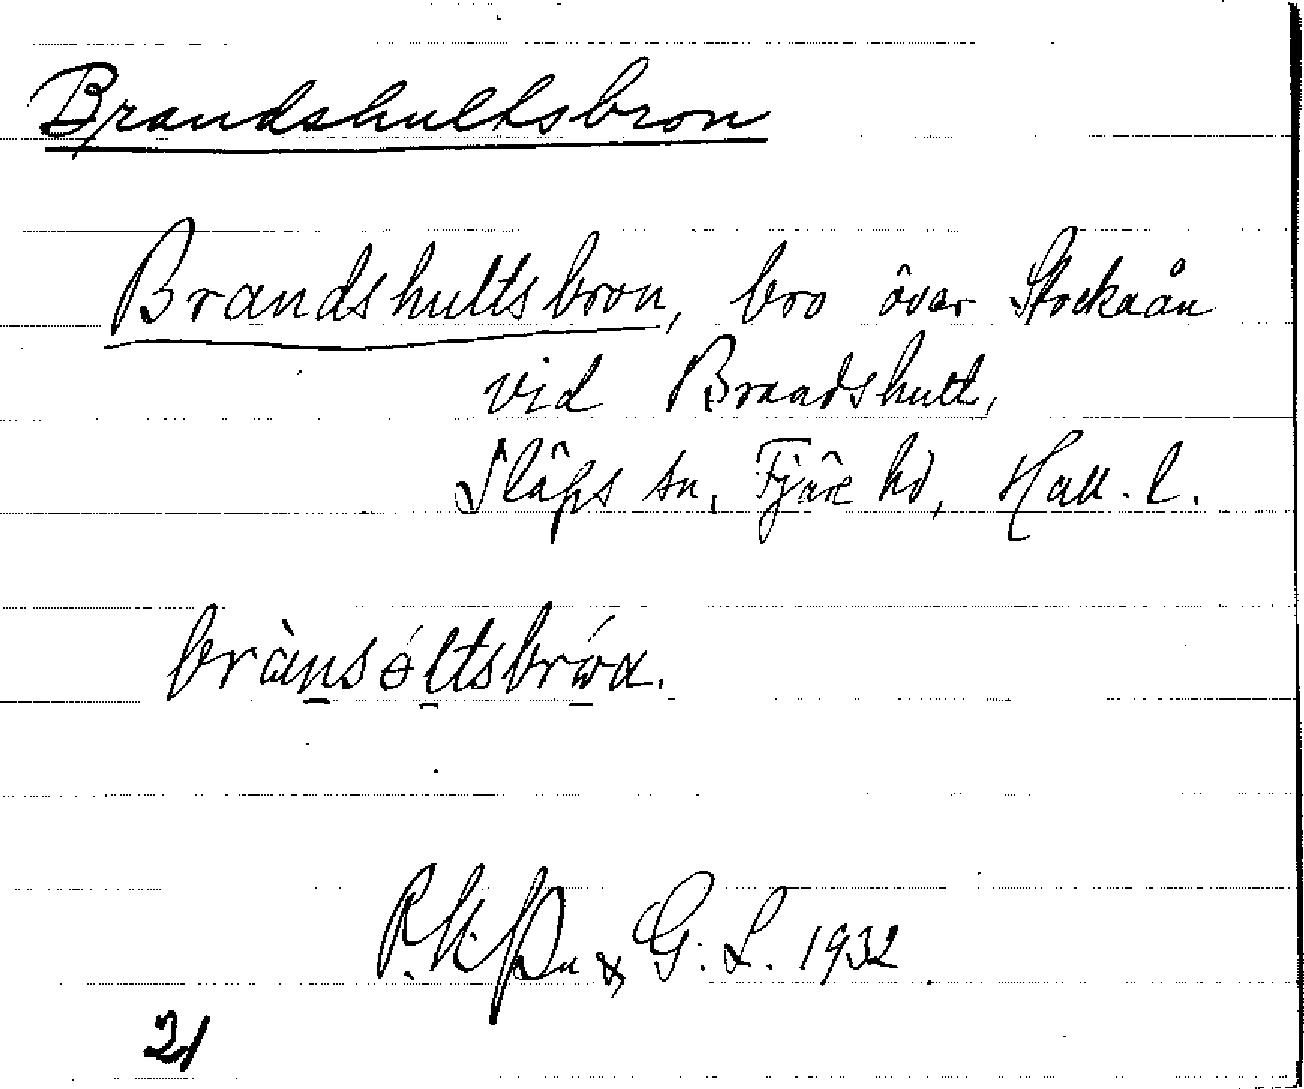 Brandshultsbron
Brandshultsbron, bro över Stockaån
vid Brandshult,
Släps sn, Fjäre hd, Hall. l.
brànsóltsbróa.
& G. L. 1932
21